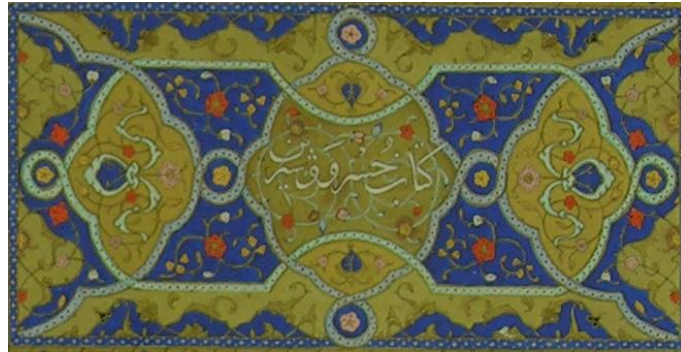 کتاب خسرو و شیرین